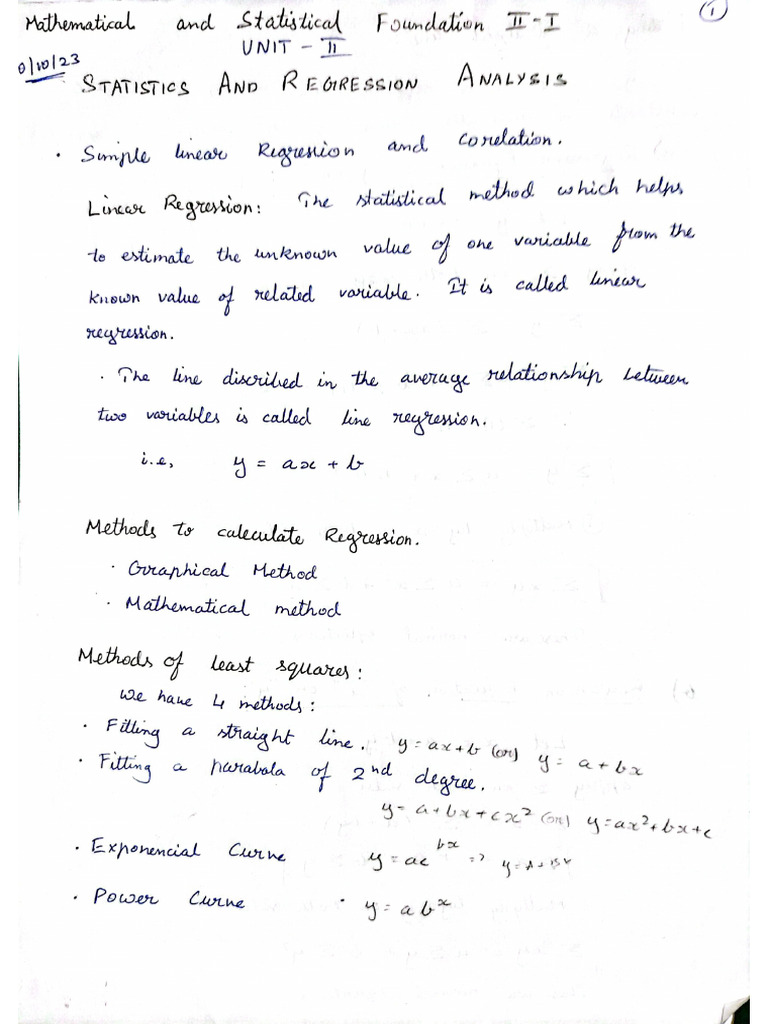 Mathematical and Statistical Foundation II - I
①
UNIT - II
0/10/23
STATISTICS AND REGRESSION ANALYSIS
· Simple linear Regression and corelation.
Linear Regression: The statistical method which helps
to estimate the unknown value of one variable from the
known value of related variable. It is called linear
regression.
· The line discribed in the average relationship between
two variables is called line regression.
i.e, y = ax + b
Methods to caleculate Regression.
· Graphical Method
· Mathematical method
Methods of least squares:
We have 4 methods:
· Fitting a straight line. y = ax + b (or) y = a + bx
· Fitting a parabala of 2nd degree.
y = a + bx + cx² (or) y = ax² + bx + c
· Exponencial Curve y = ae^bx => y = A + Bx
· Power Curve · y = ab^x